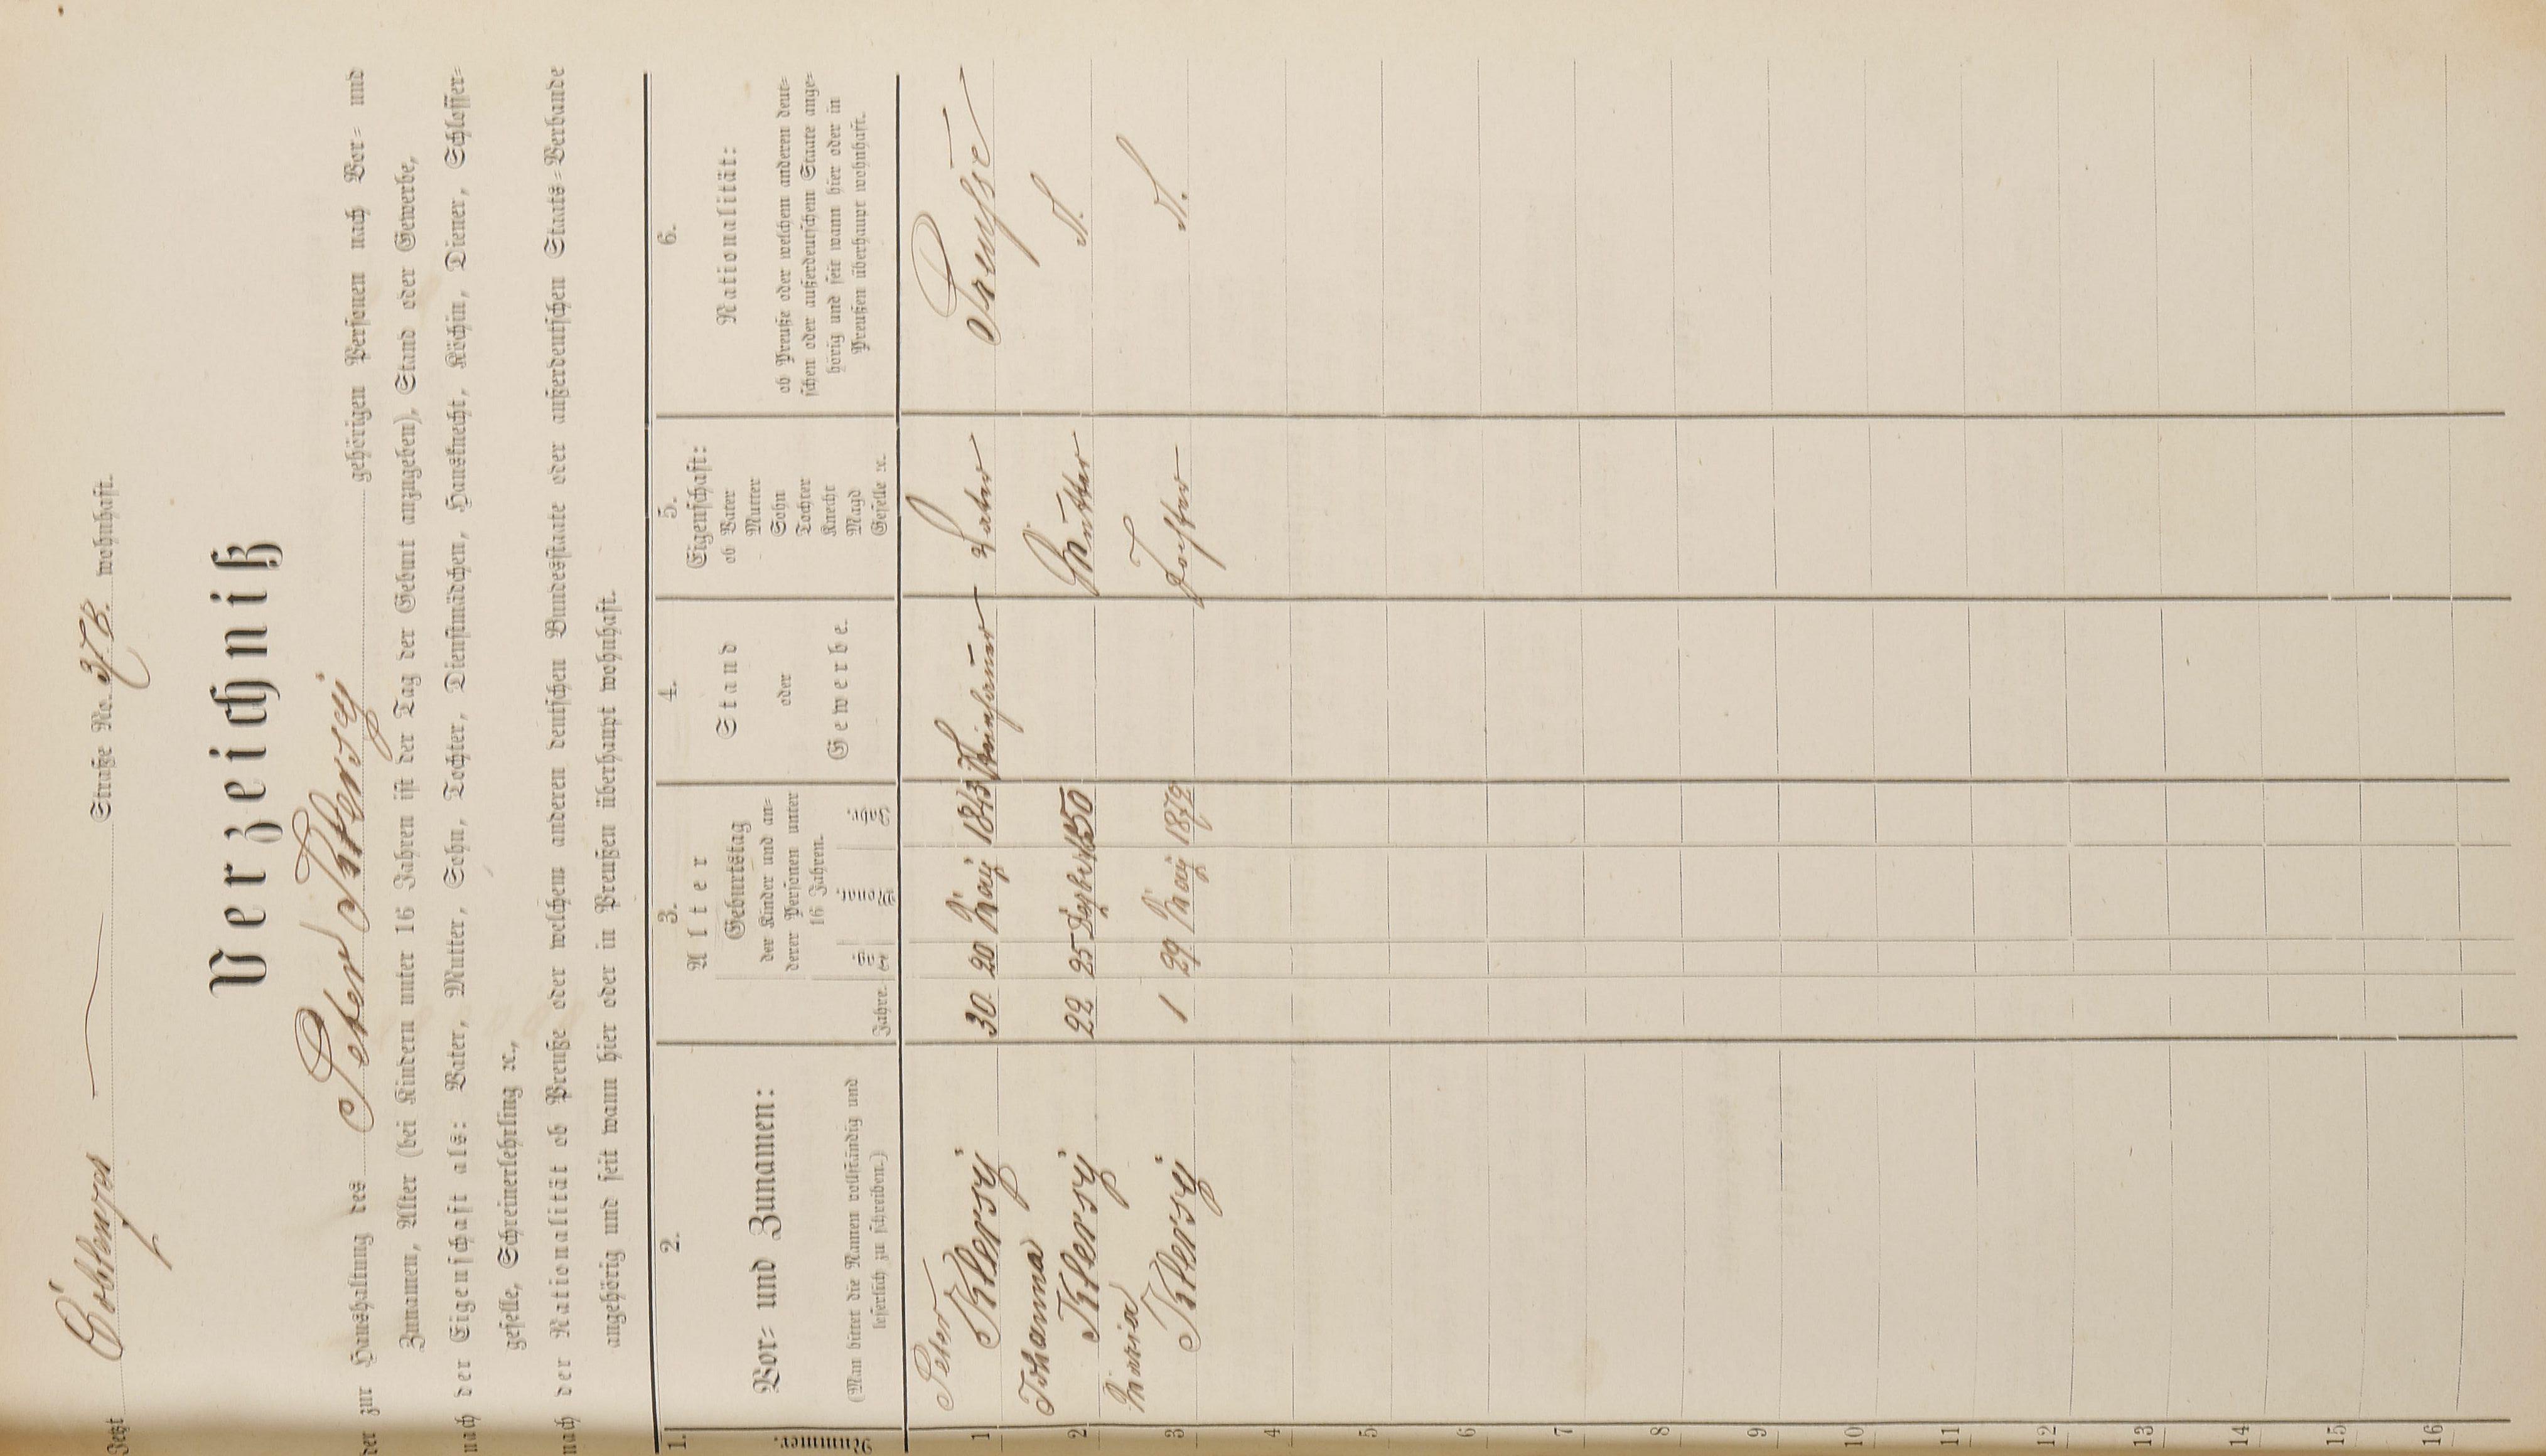 Jetzt Coblenzer Straße No. 37B. wohnhaft.
Verzeichniß
der zur Haushaltung des Peter Klersÿ gehörigen Personen nach Vor= und
Zunamen, Alter (bei Kindern unter 16 Jahren ist der Tag der Geburt anzugeben), Stand oder Gewerbe,
nach der Eigenschaft als: Vater, Mutter, Sohn, Tochter, Dienstmädchen, Hausknecht, Köchin, Diener, Schlosser=
geselle, Schreinerlehrling ꝛc.,
nach der Nationalität ob Preuße oder welchem anderen deutschen Bundesstaate oder außerdeutschen Staats=Verbande
angehörig und seit wann hier oder in Preußen überhaupt wohnhaft.
1.
Nummer.
2.
Vor= und Zunamen:
(Man bittet die Namen vollständig und
leserlich zu schreiben.)
3.
Alter
Geburtstag
der Kinder und an=
derer Personen unter
16 Jahren.
Jahre. Tag Monat Jahr
4.
Stand
oder
Gewerbe.
5.
Eigenschaft:
ob Vater
Mutter
Sohn
Tochter
Knecht
Magd
Geselle ꝛc.
6.
Nationalität:
ob Preuße oder welchem anderen deut=
schen oder außerdeutschem Staate ange=
hörig und seit wann hier oder in
Preußen überhaupt wohnhaft.
Peter
1 Klersÿ 30 20 Maÿ 1843 Steinhauer Vater Preusse
Johanna
2 Klersÿ 22 25 Dezber 1850 Mutter d.
Maria
3 Klersÿ 1 29 Maÿ 1872 Tochter d.
4
5
6
7
8
9
10
11
12
13
14
15
16